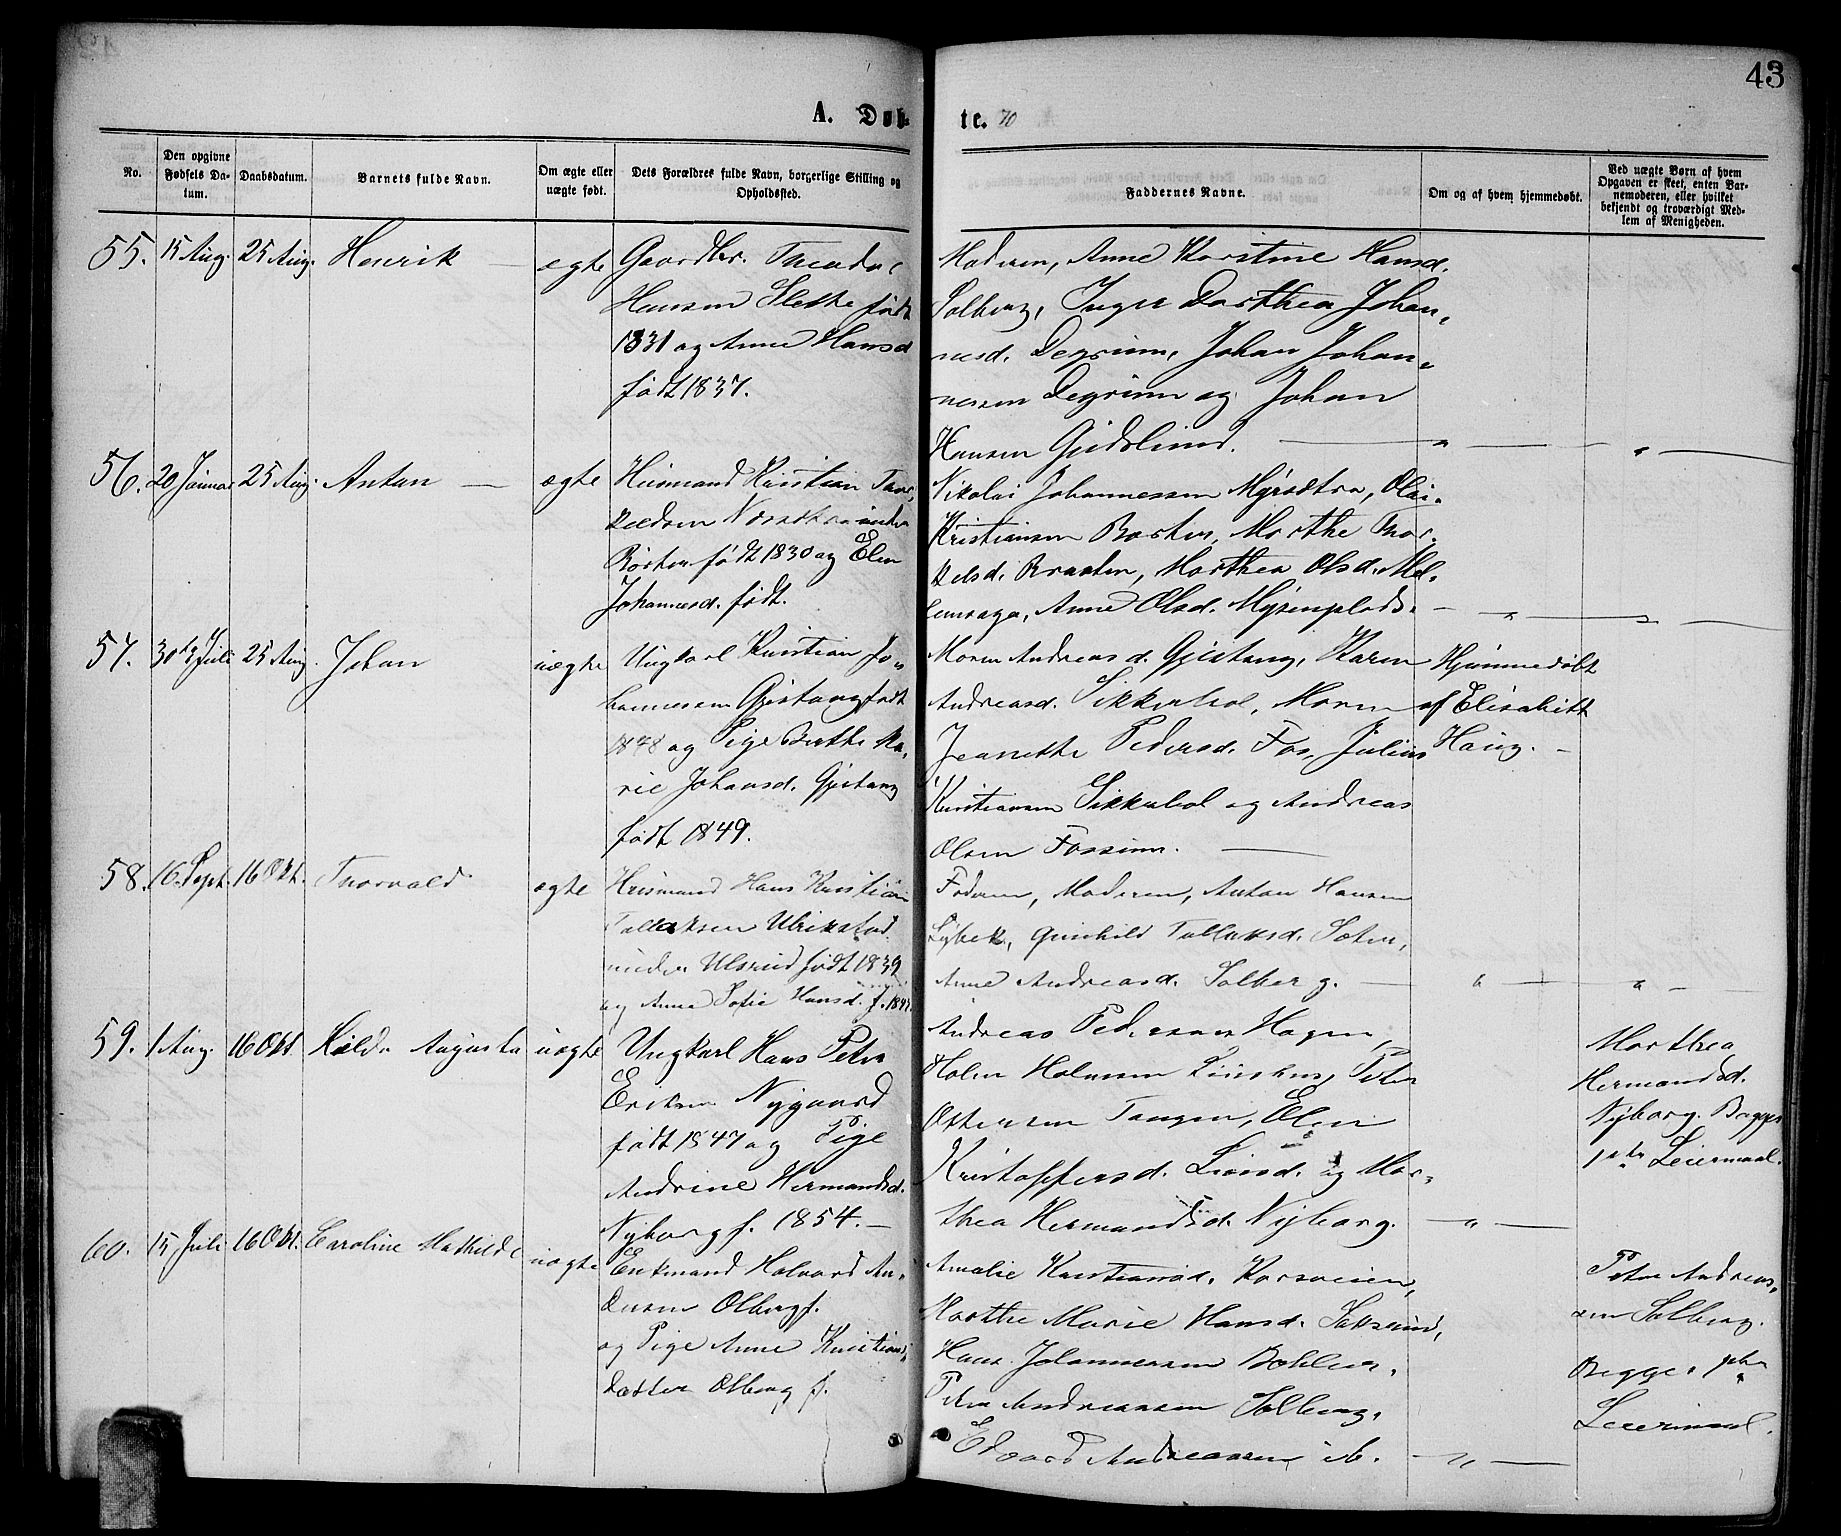 43
A. Døb-
te. 70
No.
Den opgivne Fødsels Da-
tum.
Daabsdatum.
Barnets fulde Navn.
Om ægte eller
uægte født.
Dets Forældres fulde Navn, borgerlige Stilling og
Opholdssted.
Faddernes Navne.
Om og af hvem hjemmedøbt.
Ved uægte Børn af hvem
Opgaven er skeet, enten Bar-
nemoderen, eller hvilket
bekjendt og troværdigt Med-
lem af Menigheden.
55. 15 Aug. 25 Aug. Henrik — ægte
Gaardbr.
Hansen Slette født
1831 og Anne Hansd
født 1837.
Moderen, Anne Karstine Hansd.
Solberg, Inger Dorthea Johan-
nesd. Degrum, Johan Johan-
nessen Degrum og Johan
Hansen Gudslund. — " — "
56. 20 Januar 25 Aug. Anton — ægte
Husmand Kristian Tor-
keldsen under
Børten født 1830 og Elen
Johannesd. født.
Nikolai Johannessen Myrsætra, Olai
Kristiansen Børten, Marthe Thor-
kelsd. Braaten, Marthea Olsd.
Anne Olsd. Mysenplads. — " — "
57. 30te Juli 25 Aug. Johan uægte
Ungkarl Kristian Jo-
hannessen Gjestang født
1848 og Pige Berthe Ma-
rie Johansd. Gjestang
født 1849.
Maren Andreasd. Gjestang, Karen
Andreasd. Sikkerbol, Maren
Jeanette Pedersd. Fos, Julius
Kristiansen Sikkerbol og Andreas
Olsen Fossum. —
Hjemmedøbt
af Elisabeth
Haug. —
58. 16. Sept. 16 Okt. Thorvald ægte
Husmand Hans Kristian
Tollaksen Ulrikstad
under Ulsrud født 1839
og Anne Sofie Hansd. f. 184
Faderen, Moderen, Anton Hansen
Lybek, Gunhild Tollaksd. Sæter,
Anne Andreasd. Solberg. — " — "
59. 1 Aug. 16 Okt. Hilda Augusta uægte
Ungkarl Hans Peter
Eriksen Nygaard
født 1847 og Pige
Andrine Hermandsd.
Nyborg f. 1854. —
Andreas Pedersen Hagen,
Peter
Ottersen Tangen, Elen
Kristoffersd. Liensd. og Mar-
thea Hermandsd. Nyborg. — " —
Marthea
Hermandsd.
Nyborg. Begges
1ste Leiermaal.
60. 15 Juli 16 Okt. Caroline Mathilde uægte
Enkmand Halvard An-
dersen Olberg f.
og Pige Anne Kristians-
datter Olberg f.
Amalie Kristiansd. Korsveien,
Marthe Marie Hansd. Saksrud,
Hans Johannessen Bøhler,
Peter Andreassen Solberg,
Edvard Andreassen ib. — " —
Peter Andreas-
sen Solberg.
Begges 1ste
Leiermaal.